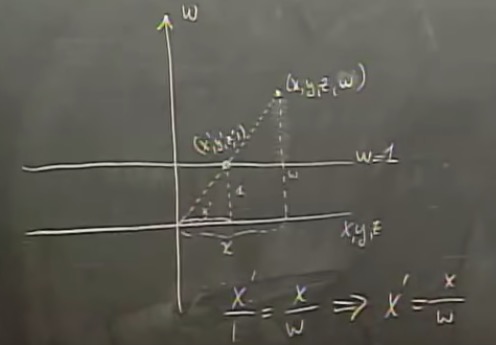 w
(x,y,z,w)
(x',y',z',1)
w=1
w
1
x'
x,y,z
x
x'/1 = x/w ⇒ x' = x/w